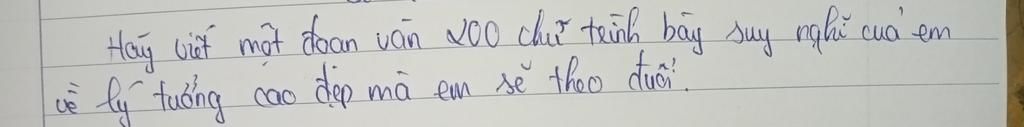 Hãy viết một đoạn văn 200 chữ trình bày suy nghĩ của em
về lý tưởng cao đẹp mà em sẽ theo đuổi.